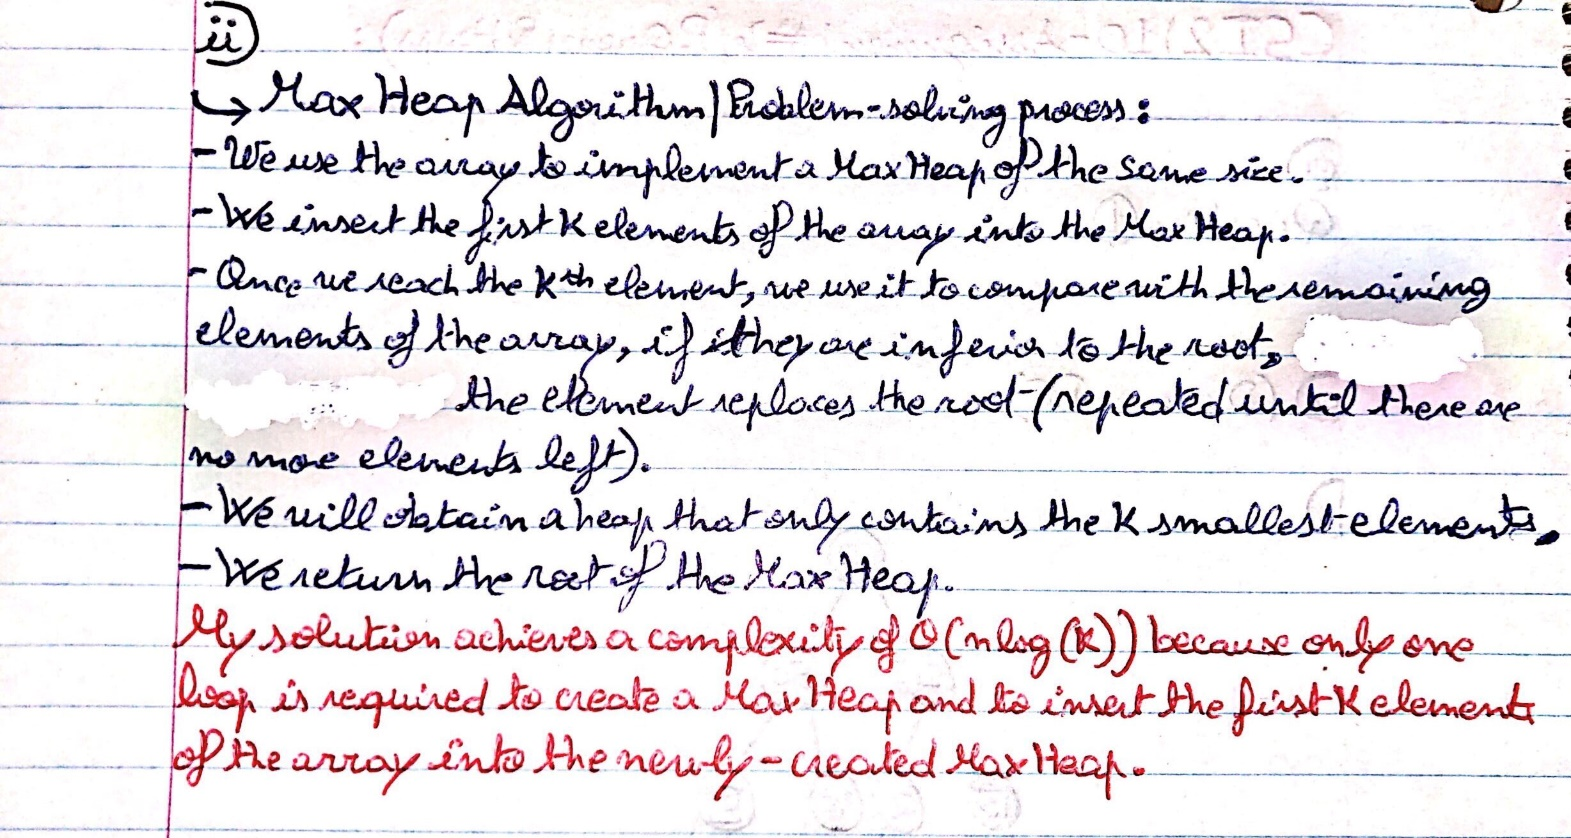 ii)
↳ Max Heap Algorithm | Problem-solving process:
- We use the array to implement a Max Heap of the same size.
- We insert the first K elements of the array into the Max Heap.
- Once we reach the Kth element, we use it to compare with the remaining
elements of the array, if they are inferior to the root,
the element replaces the root (repeated until there are
no more elements left).
- We will obtain a heap that only contains the K smallest elements.
- We return the root of the Max Heap.
My solution achieves a complexity of O(nlog(K)) because only one
loop is required to create a Max Heap and to insert the first K elements
of the array into the newly-created Max Heap.